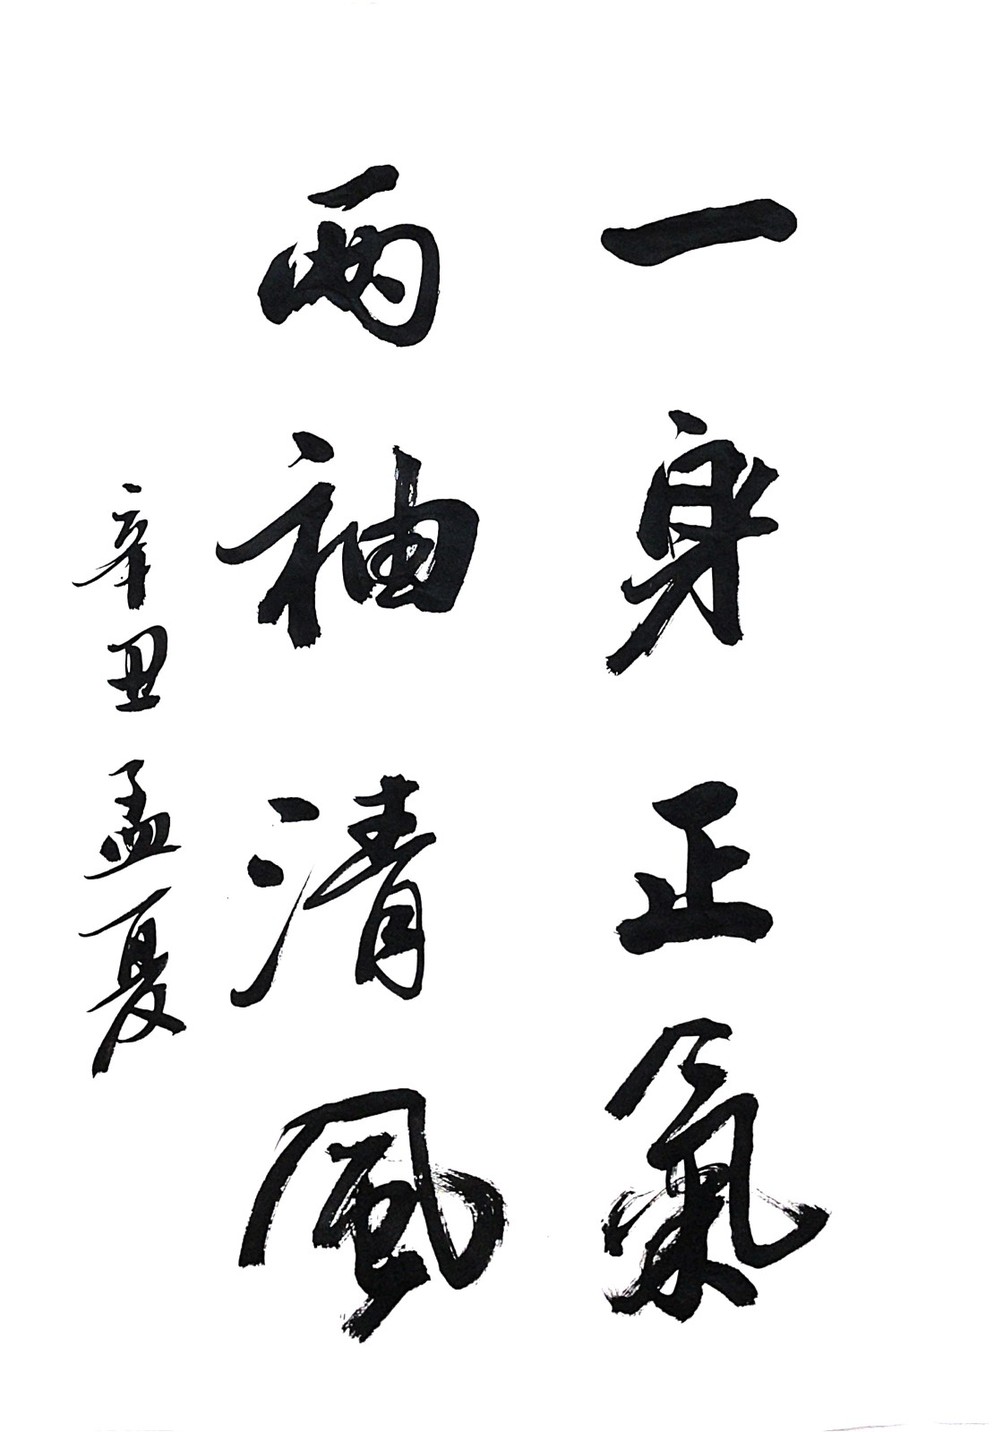 一身正氣
兩袖清風
辛丑孟夏